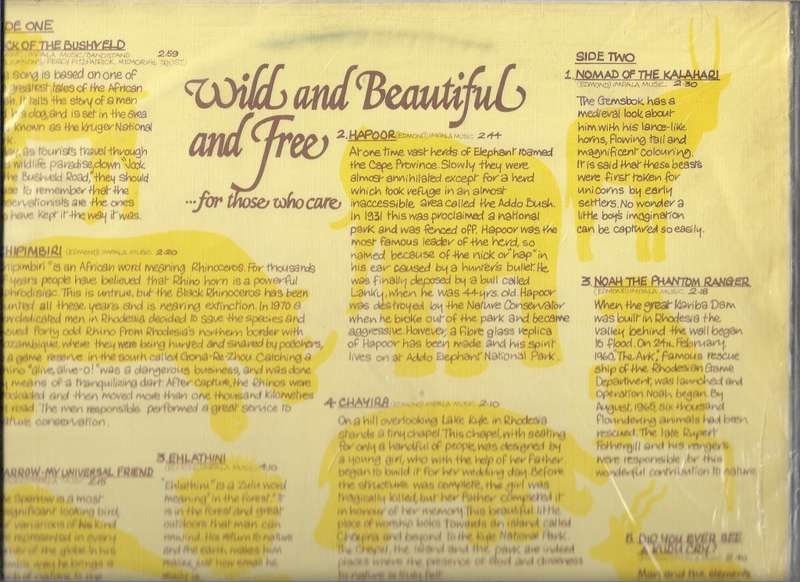 DE ONE
CK OF THE BUSHVELD 2:59
PERCY FITZPATRICK MEMORIAL TRUST)
song is based on one of
greatest tales of the African
sh. It tells the story of a man
his dog, and is set in the area
known as the Kruger National
k.
ay, as tourists travel through
wildlife paradise, down "Jock
the Bushveld Road," they should
use to remember that the
servationists are the ones
o have kept it the way it was.
Wild and Beautiful
and Free
...for those who care
HIPIMBIRI (EDMOND) IMPALA MUSIC 2:20
hipimbiri" is an African word meaning Rhinoceros. For thousands
f years people have believed that Rhino horn is a powerful
phrodisiac. This is untrue, but the Black Rhinoceros has been
hunted all these years and is nearing extinction. In 1970 a
dedicated men in Rhodesia decided to save the species and
moved forty odd Rhino from Rhodesia's northern border with
ozambique, where they were being hunted and snared by poachers,
a game reserve in the south called Gona-Re-Zhou. Catching a
hino "alive, alive-o!" was a dangerous business, and was done
y means of a tranquilizing dart. After capture, the Rhinos were
loaded and then moved more than one thousand kilometres
y road. The men responsible performed a great service to
ature conservation.
ARROW-MY UNIVERSAL FRIEND
2:15
he Sparrow is a most
significant looking bird,
r variations of his kind
e represented in every
rner of the globe. In his
way he brings a
of nations to the
3. EHLATHINI
4:10
"Ehlathini" is a Zulu word
meaning "in the forest." It
is in the forest and great
outdoors that man can
rewind. His return to nature
and the earth makes him
realise just how small he
really is.
2. HAPOOR (EDMOND) IMPALA MUSIC 2:44
At one time vast herds of Elephant roamed
the Cape Province. Slowly they were
almost annihilated except for a herd
which took refuge in an almost
inaccessible area called the Addo Bush.
In 1931 this was proclaimed a national
park and was fenced off. Hapoor was the
most famous leader of the herd, so
named because of the nick or "hap" in
his ear caused by a hunter's bullet. He
was finally deposed by a bull called
Lanky, when he was 44 yrs. old. Hapoor
was destroyed by the Nature Conservator
when he broke out of the park and became
aggressive. However, a fibre glass replica
of Hapoor has been made and his spirit
lives on at Addo Elephant National Park.
4. CHAYIRA (EDMOND) IMPALA MUSIC 2:10
On a hill overlooking Lake Kyle in Rhodesia
stands a tiny chapel. This chapel, with seating
for only a handful of people, was designed by
a young girl, who with the help of her Father
began to build it for her wedding day. Before
the structure was complete, the girl was
tragically killed, but her Father completed it
in honour of her memory. This beautiful little
place of worship looks towards an island called
Chayira and beyond to the Kyle National Park.
The chapel, the island and the park are indeed
places where the presence of God and closeness
to nature is truly felt.
SIDE TWO
1. NOMAD OF THE KALAHARI
(EDMOND) IMPALA MUSIC 2:30
The Gemsbok has a
medieval look about
him with his lance-like
horns, flowing tail and
magnificent colouring.
It is said that these beasts
were first taken for
unicorns by early
settlers. No wonder a
little boy's imagination
can be captured so easily.
3. NOAH THE PHANTOM RANGER
(EDMOND) IMPALA MUSIC 2:18
When the great Kariba Dam
was built in Rhodesia the
valley behind the wall began
to flood. On 24th. February
1960, The Ark," famous rescue
ship of the Rhodesian Game
Department, was launched and
Operation Noah began. By
August, 1965, six thousand
floundering animals had been
rescued. The late Rupert
Fothergill and his rangers
were responsible for this
wonderful contribution to nature
5. DID YOU EVER SEE
A KUDU CRY?
Man and the elements